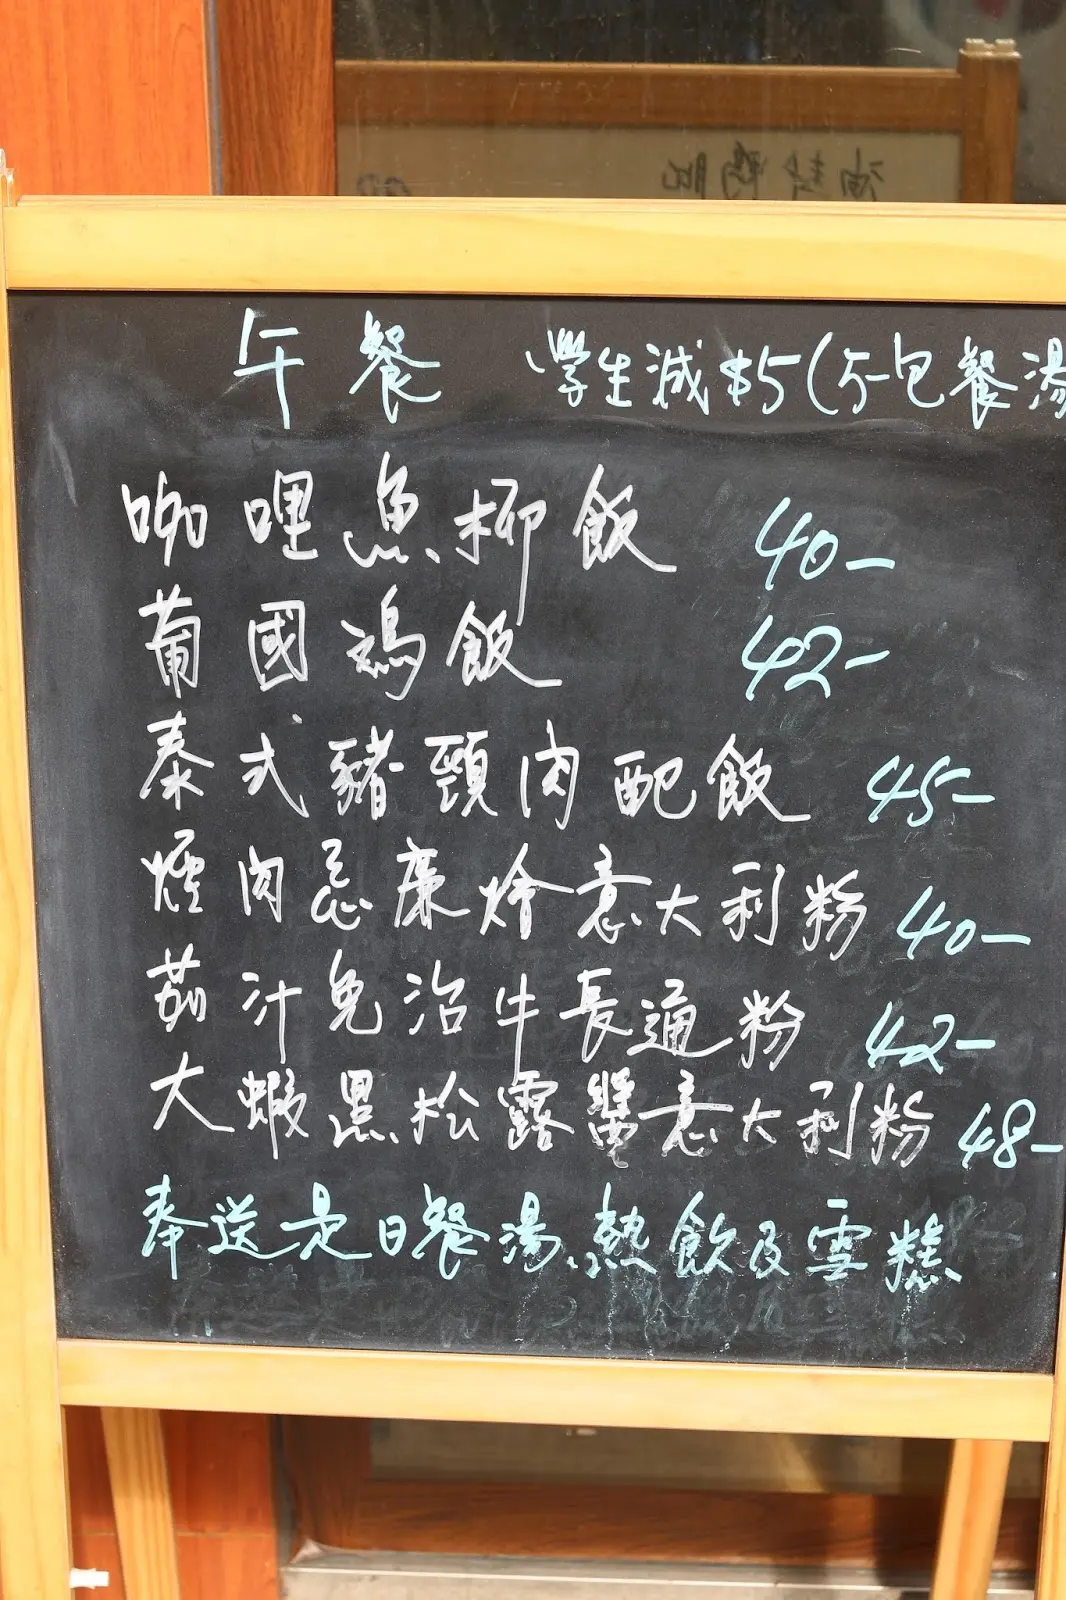 午餐 學生減$5(不包餐湯
咖哩魚柳飯 40-
葡國鷄飯 42-
泰式豬頸肉配飯 45-
煙肉忌廉燴意大利粉 40-
茄汁免治牛長通粉 42-
大蝦黑松露醬意大利粉 48-
奉送是日餐湯、熱飲及雪糕